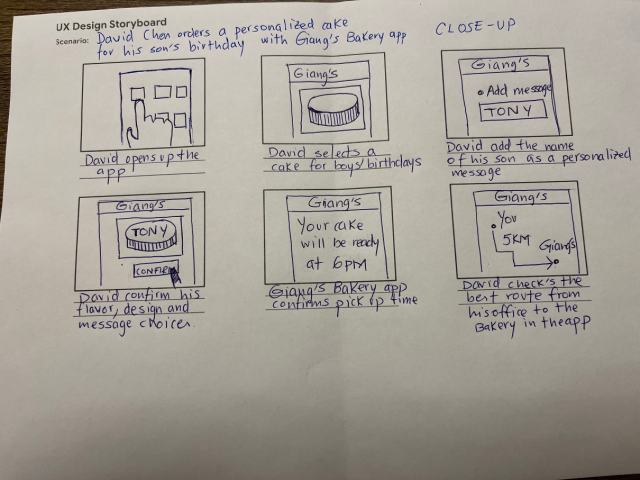 UX Design Storyboard
Scenario: David Chen orders a personalized cake
for his son's birthday with Giang's Bakery app
CLOSE-UP
David opens up the
app
Giang's
David selects a
cake for boys' birthdays
Giang's
Add message
TONY
David add the name
of his son as a personalized
message
Giang's
TONY
CONFIRM
David confirm his
flavor, design and
message choices.
Giang's
Your cake
will be ready
at 6PM
Giang's Bakery app
confirms pick up time
Giang's
You
5KM
Giang's
David check's the
best route from
his office to the
Bakery in the app